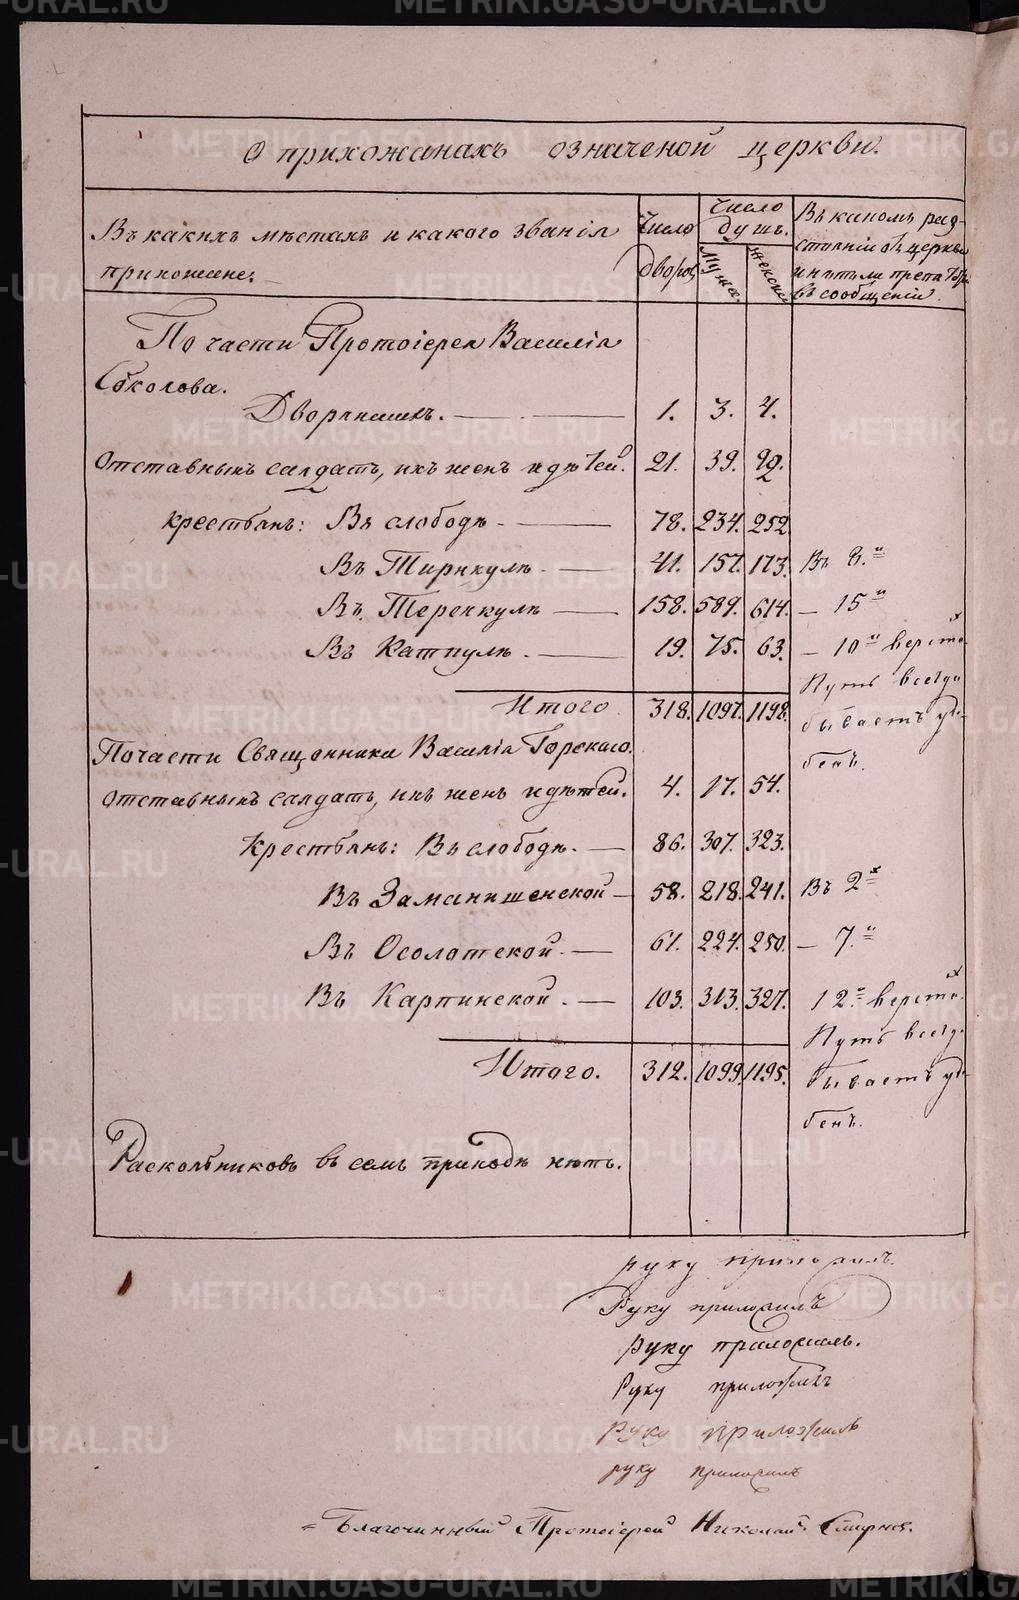 О прихожанахъ означеной церкви.
Въ какихъ мѣстахъ и какого званія прихожане.
Число дворов
Число душъ.
Муже.
женск.
Въ какомъ раз-
стояніи отъ церкви
и нѣтъ ли препят
въ сообщеніи
По части Протоіерея Василія
Соколова.
Дворянинъ. 1. 3. 4.
Отставныхъ салдатъ, ихъ женъ и дѣтей. 21. 39. 92.
крестьянъ: Въ слободѣ 78. 234. 252.
Въ Тирикулѣ 41. 157. 173. Въ 8.и
Въ Теренкулѣ 158. 589. 614. — 15и
Въ Катпулѣ 19. 75. 63. — 10и верста
Путь всегда
Итого 318. 1097. 1198. бываетъ удо-
бенъ.
По части Священника Василія Горскаго.
отставныхъ салдатъ, ихъ женъ и дѣтей. 4. 17. 54.
Крестьянъ: Въ слободѣ. 86. 307. 323.
Въ Заманишенской 58. 218. 241. Въ 2х
Въ Осолотской. 61. 224. 250. — 7.и
Въ Карпинской. 103. 313. 327. 12.и верста.
Путь всегд.
Итого. 312. 1099. 1195. бываетъ удо-
бенъ.
Раскольниковъ въ семъ приходѣ нѣтъ.
руку приложилъ.
Руку приложилъ
Руку приложилъ.
Руку приложилъ
Руку приложилъ
руку приложилъ
Благочинный Протоіерей Николай Смирнов.
METRIKI.GASO-URAL.RU